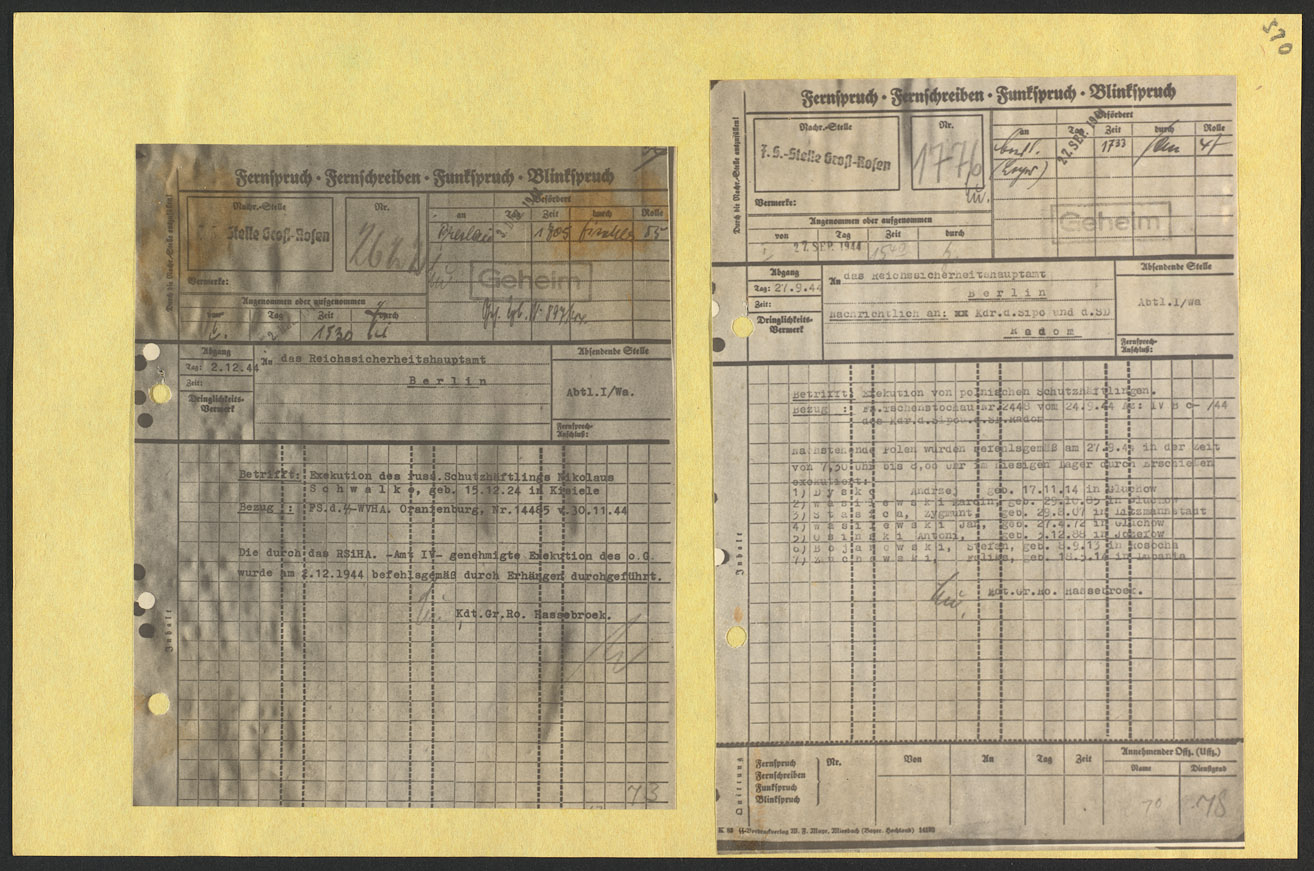 570
Fernspruch · Fernschreiben · Funkspruch · Blinkspruch
Durch die Nachr.-Stelle auszufüllen!
Nachr.-Stelle
Stelle Groß-Rosen
Vermerke:
Nr.
2622
Befördert
an Tag Zeit durch Rolle
Breslau 1905 85
Geheim
Angenommen oder aufgenommen
Tag Zeit durch
1830
Abgang
Tag: 2.12.44
Zeit:
Dringlichkeits-
Vermerk
An das Reichssicherheitshauptamt
Berlin
Absendende Stelle
Abtl.I/Wa.
Fernsprech-
Anschluß:
Betrifft: Exekution des russ.Schutzhäftlings Nikolaus
Schwalke, geb. 15.12.24 in Kisiele
Bezug : FS.d.SS-WVHA. Oranienburg, Nr.14485 v.30.11.44
Die durch das RSiHA. -Amt IV- genehmigte Exekution des o.G.
wurde am 2.12.1944 befehlsgemäß durch Erhängen durchgeführt.
Kdt.Gr.Ro. Hassebroek.
Inhalt
73
Fernspruch · Fernschreiben · Funkspruch · Blinkspruch
Durch die Nachr.-Stelle auszufüllen!
Nachr.-Stelle
F.S.-Stelle Groß-Rosen
Vermerke:
Nr.
1776
Befördert
an Tag Zeit durch Rolle
27. SEP. 1944 1733 47
Geheim
Angenommen oder aufgenommen
von Tag Zeit durch
27. SEP. 1944
Abgang
Tag: 27.9.44
Zeit:
Dringlichkeits-
Vermerk
An das Reichssicherheitshauptamt
Berlin
Nachrichtlich an: xx Kdr.d.Sipo und d.SD
Radom
Absendende Stelle
Abtl.I/Wa
Fernsprech-
Anschluß:
Betrifft: Exekution von polnischen Schutzhäftlingen.
Bezug : FS.Tschenstochau Nr.2448 vom 24.9.44 Az: IV B c- /44
des Kdr.d.Sipo u.d.SD.Radom
Nachstehende Polen wurden befehlsgemäß am 27.9.44 in der Zeit
von 7,50 Uhr bis 8,00 Uhr im hiesigen Lager durch Erschießen
exekutiert:
1) Dysko Andrzej geb. 17.11.14 in Gluchow
2) Wasilewski Marcin, geb. in Gluchow
3) Stasica, Zygmunt, geb. 29.8.07 in Litzmannstadt
4) Wasilewski Jan, geb. 27.4.72 in Gluchow
5) Osinski Antoni, geb. 3.12.88 in Josefow
6) Bojanowski, Stefan, geb. 8.9.13 in
7) Zuchowski, Feliks, geb. in
Kdt.Gr.Ro. Hassebroek.
Inhalt
Quittung
Fernspruch
Fernschreiben
Funkspruch
Blinkspruch
Nr. Von An Tag Zeit
Annehmender Offz. (Uffz.)
Name Dienstgrad
70 78
K 89 SS-Vordruckverlag W. F. Mayr, Miesbach (Bayer. Hochland)